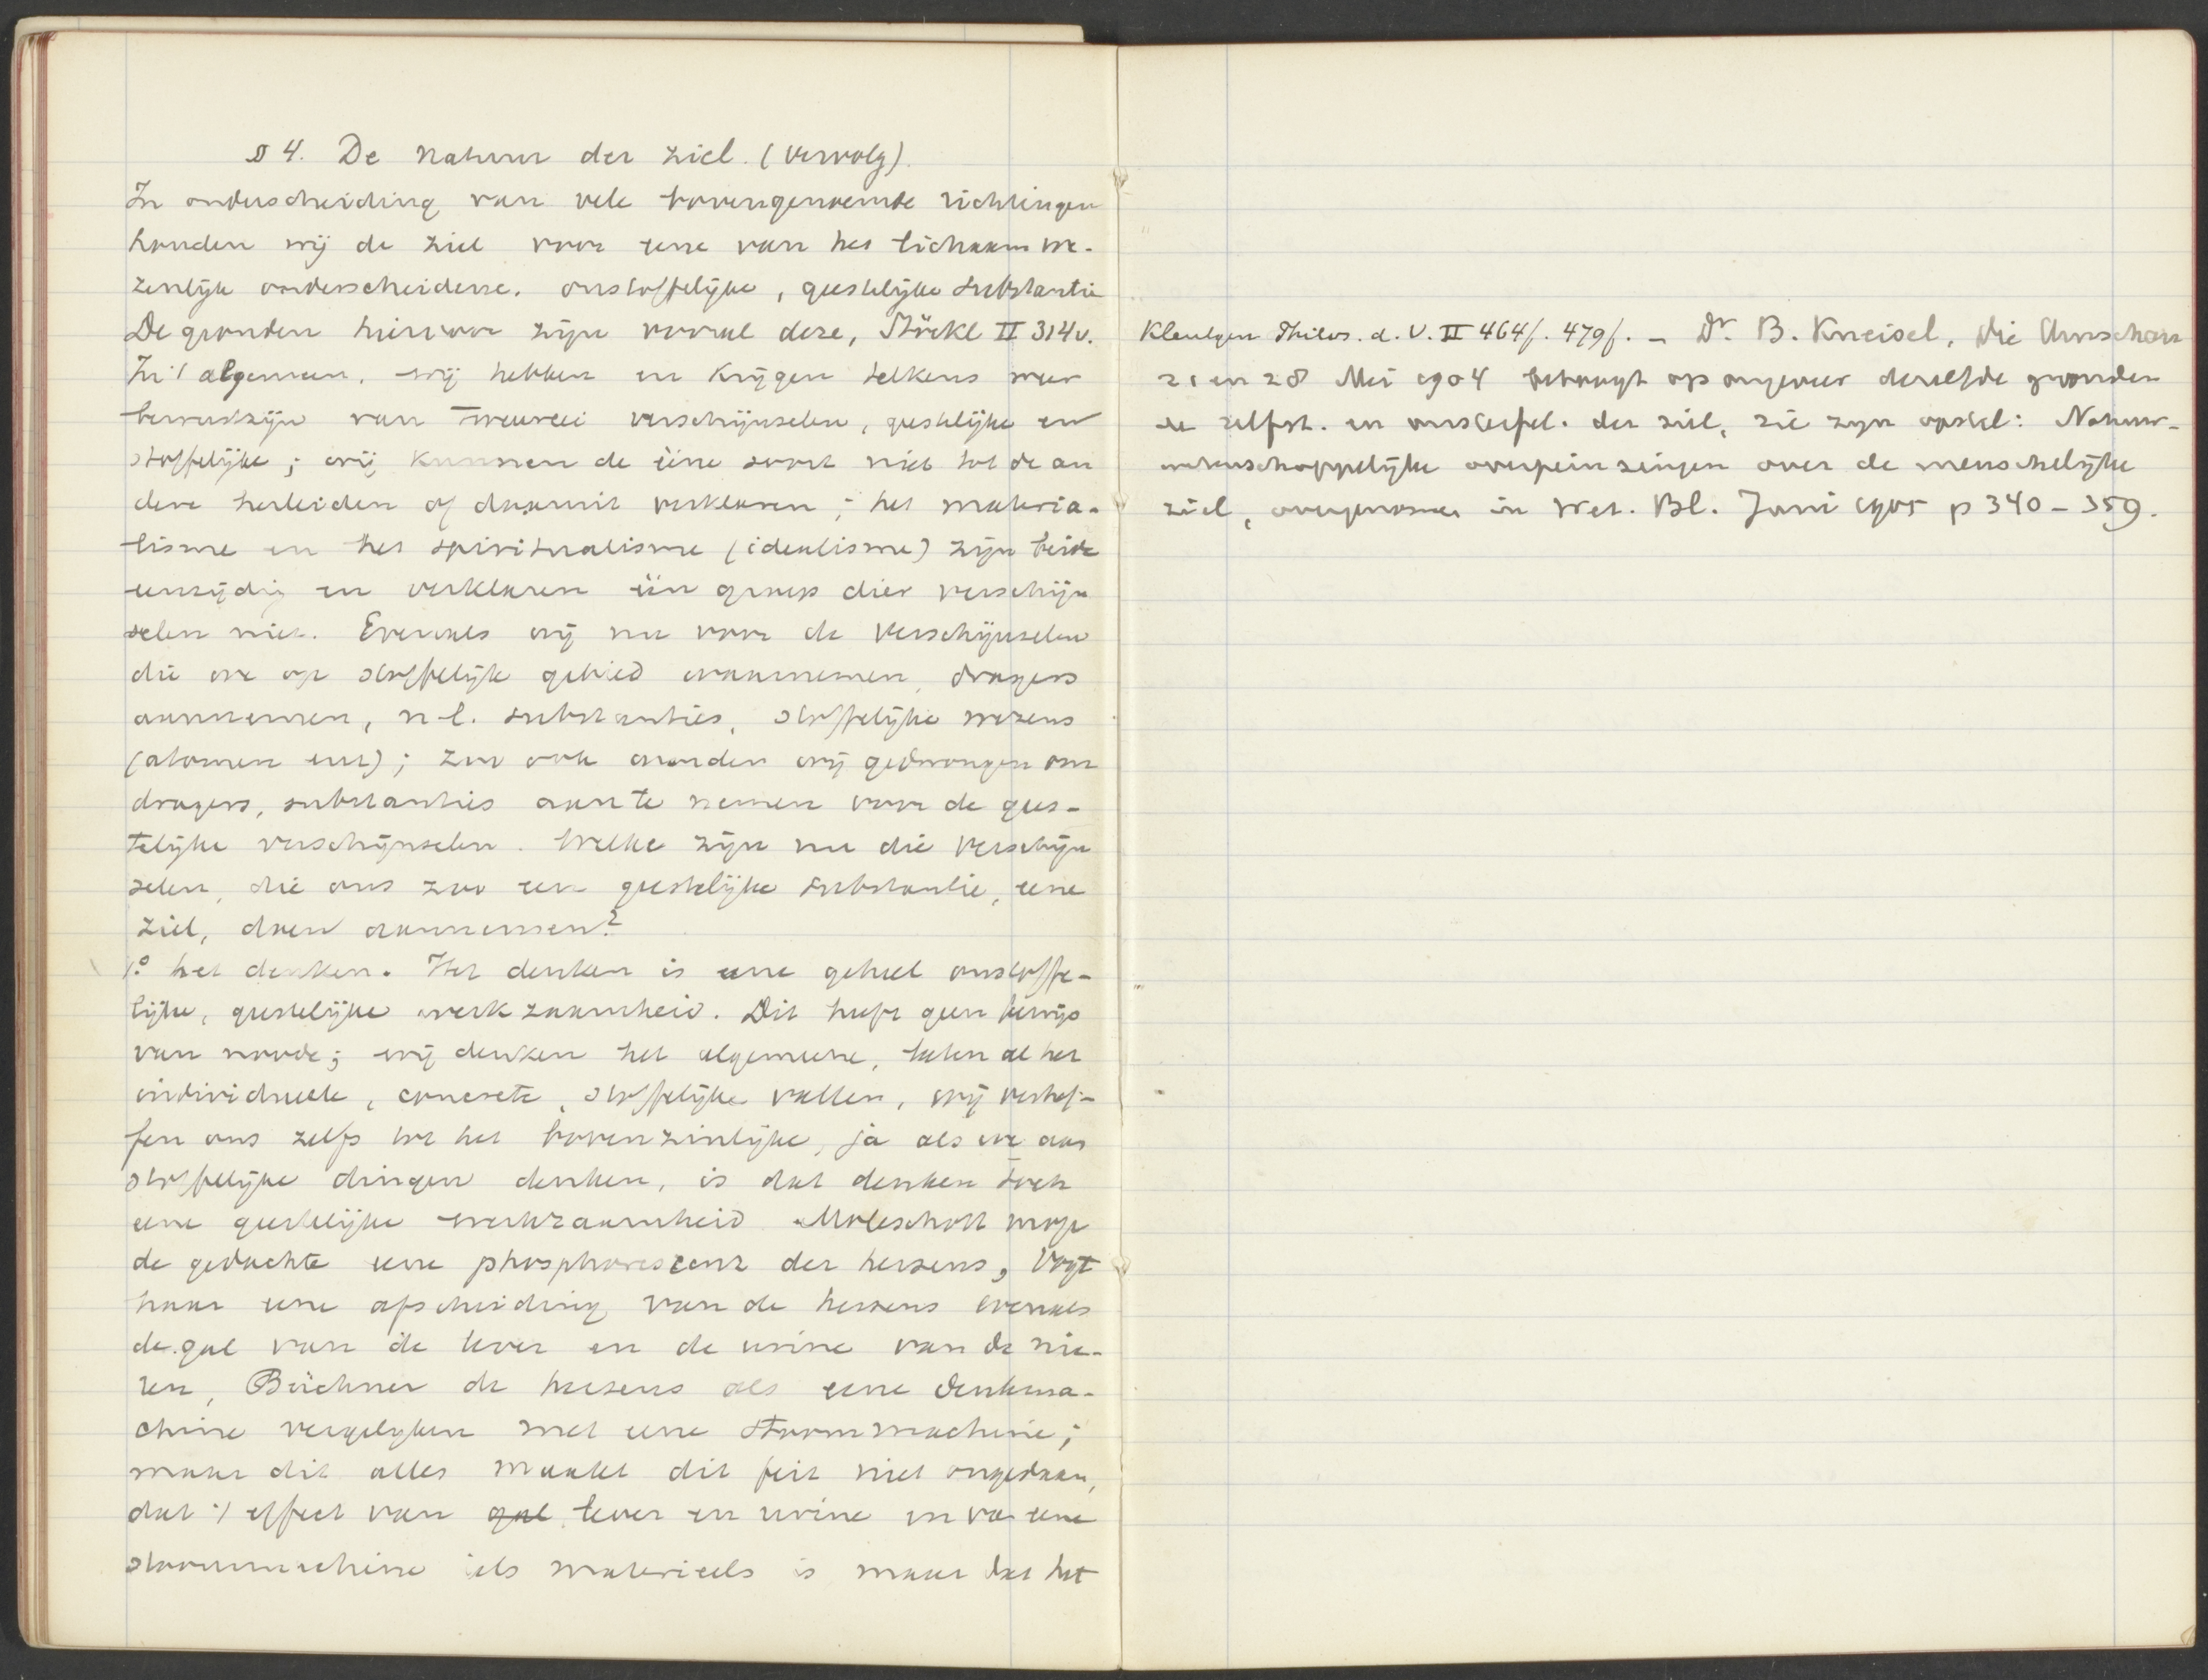 § 4. De natuur der ziel. (vervolg).
In onderscheiding van vele bovengenoemde richtingen
houden wij de ziel voor eene van het lichaam we-
zenlijk onderscheidene, onstoffelijke, geestelijke substantie
De gronden hiervoor zijn vooral deze, Stöckl II 314v.
In 't algemeen, wij hebben en krijgen telkens weer
bewustzijn van tweeërlei verschijnselen, geestelijke en
stoffelijke; wij kunnen de ééne soort niet tot de an
dere herleiden of daaruit verklaren; het materia-
lisme en het spiritualisme (idealisme) zijn beide
eenzijdig en verklaren één groep dier verschijn
selen niet. Evenals wij nu voor de verschijnselen
die we op stoffelijk gebied waarnemen, dragers
aannemen, n.l. substanties, stoffelijke wezens
(atomen enz); zoo ook worden wij gedwongen om
dragers, substanties aan te nemen voor de gees-
telijke verschijnselen. Welke zijn nu die verschijn
selen, die ons zoo een geestelijke substantie, eene
ziel, doen aannemen?
1.° het denken. Het denken is eene geheel onstoffe-
lijke, geestelijke werkzaamheid. Dit heeft geen bewijs
van noode; wij denken het algemeene, laten al het
individueele, concrete, stoffelijke vallen, wij verhef-
fen ons zelfs tot het bovenzinlijke, ja als we aan
stoffelijke dingen denken, is dat denken toch
eene geestelijke werkzaamheid. Moleschott moge
de gedachte eene phosphorescenz der hersens, Vogt
haar eene afscheiding van de hersens evenals
de gal van de lever en de urine van de nie-
ren, Büchner de hersens als eene denkma-
chine vergelijken met eene stoommachine;
maar dit alles maakt dit feit niet ongedaan,
dat 't effect van gal lever en urine en van eene
stoommachine iets materieels is maar dat het
Kleutgen Philos. d. V. II 464f. 479f. – Dr. B. Kneisel, Die Anschau
21 en 28 Mei 1904 betoogt op ongeveer dezelfde gronden
de zelfst. en onstoffel. der ziel, zie zijn opstel: Natuur-
wetenschappelijke overpeinzingen over de menschelijke
ziel, overgenomen in Wet. Bl. Juni 1905 p 340 – 359.